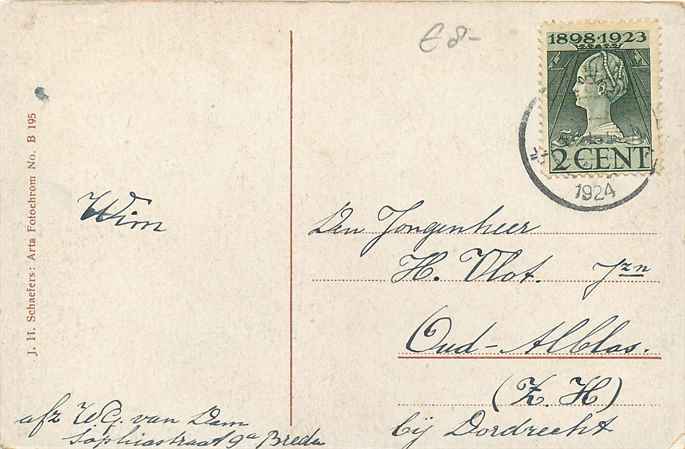 € 8-
1898·1923
2 CENT
1924
J. H. Schaefers: Arta Fotochrom No. B 195
Wim
Den Jongenheer
H. Vlot. Jzn
Oud-Alblas.
(Z. H)
bij Dordrecht
afz W.G. van Dam
Sophiastraat 9a Breda